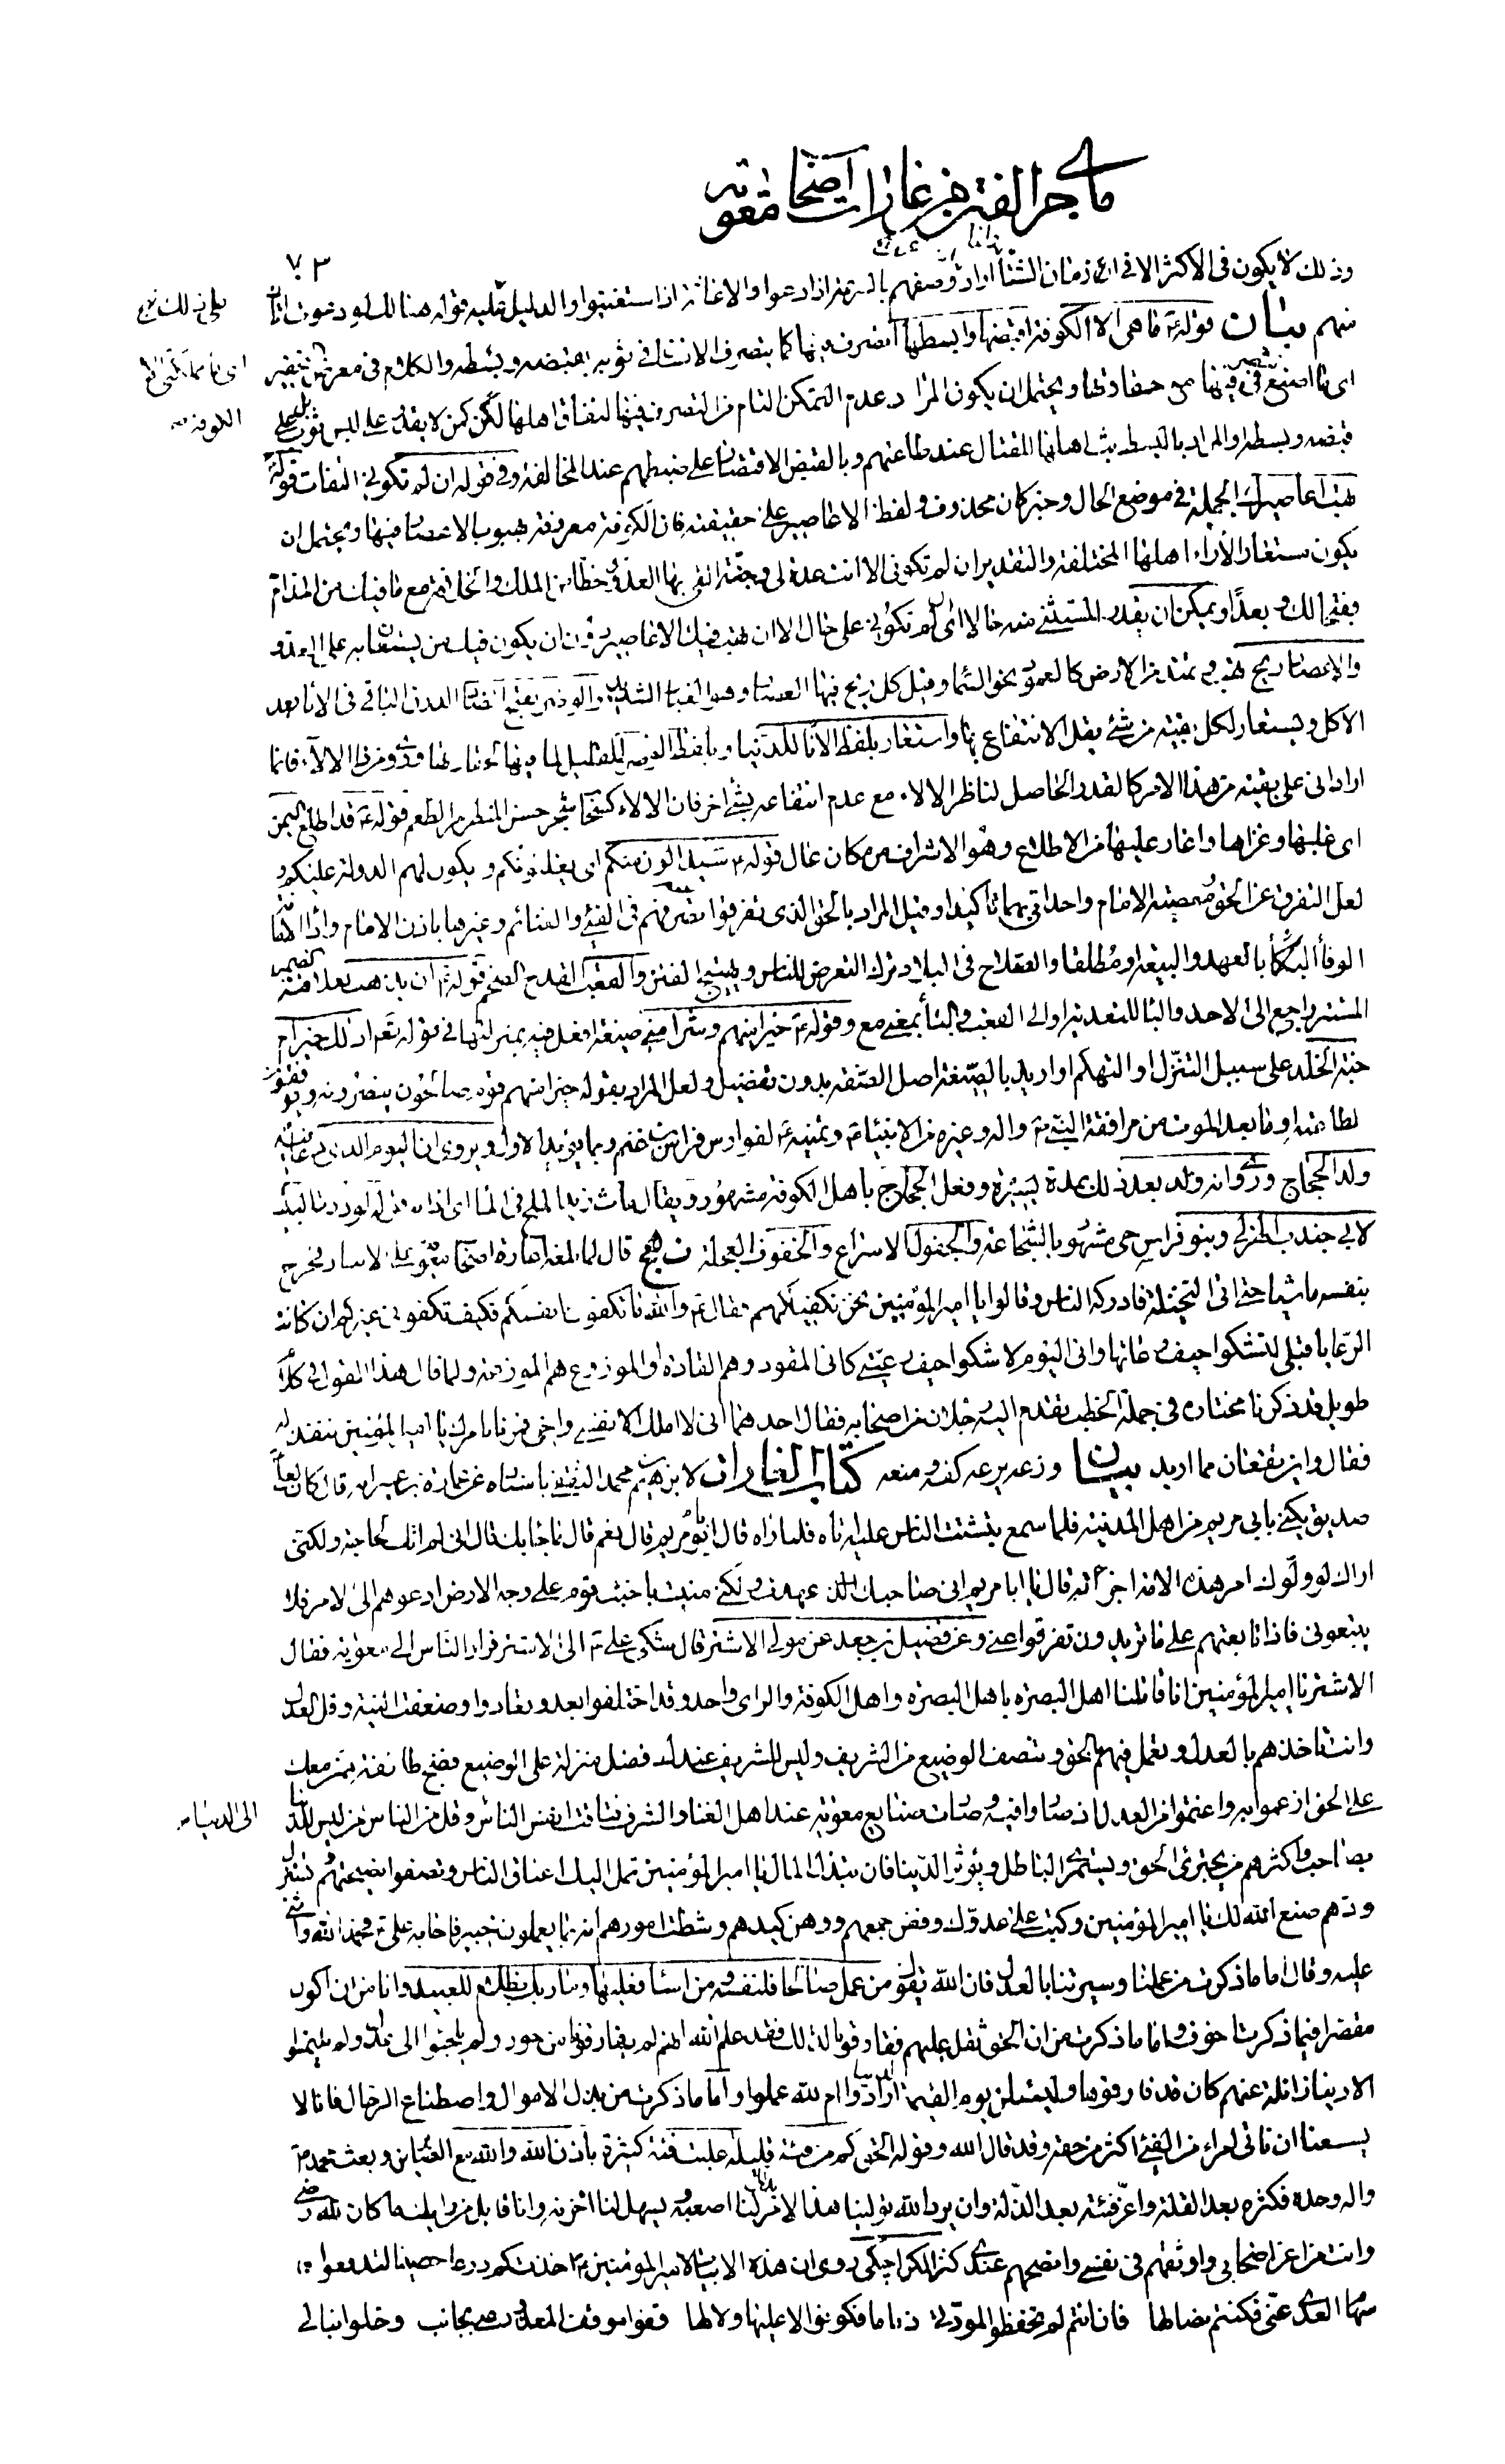 ما جرى من الفتن من غارات أصحاب معوية
٧٠٣
وذلك لا يكون فى الاكثر الا فى زمان الشتا اراد وصفهم بالسرعة اذا دعوا والاغاثة اذا استغيثوا والدليل عليه قوله هنالك لو دعوت اتاك
منهم بيان قوله ع ما هى الا الكوفة اقبضها وابسطها اى اتصرف فيها كما يتصرف الانسان فى ثوبه بقبضه وبسطه والكلام فى معرض التحقير
اى ما اصنع بتصرفى فيها مع حقارتها ويحتمل ان يكون المراد عدم التمكن التام من التصرف فيها لنفاق اهلها كمن لا يقدر على لبس ثوب بل على
قبضه وبسطه والمراد بالبسط بث اهلها للقتال عند طاعتهم وبالقبض الاقتصار على ضبطهم عند المخالفة وفى قوله ان لم تكونى التفات قوله
تهب اعاصيرك الجملة فى موضع الحال وخبر كان محذوف ولفظ الاعاصير على حقيقته فان الكوفة معروفة بهبوب الاعصار فيها ويحتمل ان
يكون مستعارا لآراء اهلها المختلفة والتقدير ان لم تكونى الا انت عدة لى وجنة اتقى بها العدو وحظا من الملك والخلافة مع ما فيك من المذام
فقبحا لك وبعدا ويمكن ان يقدر المستثنى منه حالا اى ان لم تكونى على حال الا ان تهب فيك الاعاصير دون ان يكون فيك من يستعان به على العدو
والاعصار ريح تهب وتمتد من الارض كالعمود نحو السماء وقيل كل ريح فيها العصار وهو الغبار الشديد والوضر بفتح الضاد الدرن الباقى فى الاناء بعد
الاكل ويستعار لكل بقية من شئ يقل الانتفاع بها واستعار بلفظ الاناء للدنيا وبلفظ الوضر القليل لما فيها
اراد انى على بقية من هذا الامر كالقدر الحاصل لناظر الالاء مع عدم انتفاعه بشئ اخر فان الالاء كسحاب شجر حسن المنظر مر الطعم قوله ع قد اطلع اليمن
اى غلبها وغزاها واغار عليها من الاطلاع وهو الاشراف من مكان عال قوله ع سيدالون منكم اى يغلبونكم ويكون لهم الدولة عليكم و
لعل التفرق عن الحق ومعصية الامام واحد اتى بهما تاكيدا وقيل المراد بالحق الذى تفرقوا عنه تصرفهم فى الفئ والغنائم وغيرها باذن الامام واداء الامانة
الوفاء بالعهد والبيعة او مطلقا والصلاح فى البلاد ترك التعرض للناس وتهييج الفتن والقعب القدح الضخم قوله ع ان يذهب بعلاقته الضمير
المستتر راجع الى الاحد والباء للتعدية او الى القعب والباء بمعنى مع وقوله ع خيرا منهم وشرا منى صيغة افعل فيه بمنزلتها فى قوله تعالى اذلك خير ام
جنة الخلد على سبيل التنزل او التهكم او اريد بالصيغة اصل الصفة بدون تفضيل ولعل المراد بقوله خيرا منهم قوم صالحون ينصرونه ويوفقون
لطاعته او ما بعد الموت من مرافقة النبى ص واله وغيره من الانبياء ع وتمنيه ع لفوارس فراس بن غنم ربما يؤيد الاول ويروى ان اليوم الذى دعا فيه
ولد الحجاج وروى انه ولد بعد ذلك بمدة يسيرة وفعل الحجاج باهل الكوفة مشهور ويقال ماث زيد الملح فى الماء اى اذابه
لابى جندب الهذلى وبنو فراس حى مشهور بالشجاعة والجفول الاسراع والخفوف العجلة نهج قال لما بلغه اغارة اصحاب معوية على الانبار فخرج
بنفسه ماشيا حتى اتى النخيلة فادركه الناس وقالوا يا امير المؤمنين نحن نكفيكهم فقال ع والله ما تكفوننى انفسكم فكيف تكفوننى غيركم ان كانت
الرعايا قبلى لتشكوا حيف رعاتها وانى اليوم لاشكوا حيف رعيتى كاننى المقود وهم القادة او الموزوع وهم الوزعة ولما قال هذا القول فى كلام
طويل قد ذكرنا مختاره فى جملة الخطب تقدم اليه رجلان من اصحابه فقال احدهما انى لا املك الا نفسى واخى فمرنا بامرك يا امير المؤمنين ننفذ له
فقال واين تقعان مما اريد بيان وزعه يزعه كفه ومنعه كتاب الغارات لابرهيم بن محمد الثقفى باسناده عن عمارة بن عمير قال كان لعلى
صديق يكنى بابى مريم من اهل المدينة فلما سمع بتشتت الناس عليه اتاه فلما راه قال ابو مريم قال نعم قال ما جاء بك قال انى لم اتك لحاجة ولكنى
اراك لو ولوك امر هذه الامة اجزأته قال يا ابا مريم انى صاحبك الذى عهدت ولكنى منيت باخبث قوم على وجه الارض ادعوهم الى الامر فلا
يتبعونى فاذا تابعتهم على ما يريدون تفرقوا عنى وعن فضيل بن جعد عن مولى الاشتر قال شكى على ع الى الاشتر فرار الناس الى معوية فقال
الاشتر يا امير المؤمنين انا قاتلنا اهل البصرة باهل البصرة واهل الكوفة والراى واحد وقد اختلفوا بعد وتعادوا وضعفت النية وقل العدل
وانت تاخذهم بالعدل وتعمل فيهم بالحق وتنصف الوضيع من الشريف وليس للشريف عندك فضل منزلة على الوضيع فضج طائفة ممن معك
على الحق اذ عموا به واغتموا من العدل اذ صاروا فيه وصارت صنايع معوية عند اهل الغناء والشرف فتاقت انفس الناس الى الدنيا وقل من الناس من ليس للدنيا
بصاحب واكثرهم من يجتوى الحق ويستمرئ الباطل ويؤثر الدنيا فان تبذل المال يا امير المؤمنين تمل اليك اعناق الناس وتصفوا نصيحتهم وتستنزل
ودهم صنع الله لك يا امير المؤمنين وكبت على عدوك وفض جمعهم ووهن كيدهم وشطت امورهم انه بما يعملون خبير فاجابه على ع فحمد الله واثنى
عليه وقال اما ما ذكرت من عملنا وسيرتنا بالعدل فان الله يقول من عمل صالحا فلنفسه ومن اساء فعليها وما ربك بظلام للعبيد وانا من ان اكون
مقصرا فيما ذكرت اخوف واما ما ذكرت من ان الحق ثقل عليهم ففارقونا لذلك فقد علم الله انهم لم يفارقونا من جور ولم يلجئوا الى عدل ولم يلتمسوا
الا دنيا زائلة عنهم كان قد فارقوها وليسئلن يوم القيمة الدنيا ارادوا ام لله عملوا واما ما ذكرت من بذل الاموال واصطناع الرجال فانا لا
يسعنا ان نأتى امرء من الفئ اكثر من حقه وقد قال الله وقوله الحق كم من فئة قليلة غلبت فئة كثيرة باذن الله والله مع الصابرين وبعث محمد ص
واله وحده فكثره بعد القلة واعز فئته بعد الذلة وان يرد الله تولينا هذا الامر يذلل لنا اصعبه ويسهل لنا احزنه وانا قابل من رايك ما كان لله رضى
وانت من اعز اصحابى واوثقهم فى نفسى وانصحهم عندى كنز الكراجكى روى ان هذه الابيات لامير المؤمنين ع اخذتكم درعا حصينا لتدفعوا
سهام العدى عنى فكنتم نصالها فان انتم لم تحفظوا لمودتى ذماما فكونوا لا عليها ولا لها قفوا موقف المعذور عنى بجانب وخلوا نبالى
الكوفة
الى الدنيا